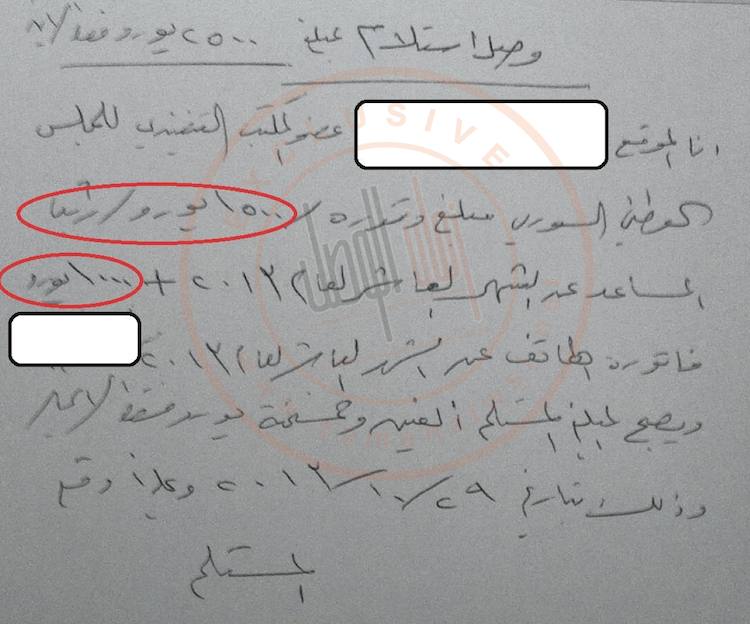 وصل استلام مبلغ ٢٥٠٠ يورو فقط لا غير
انا الموقع عضو المكتب التنفيذي للمجلس
الوطني السوري مبلغ وقدره /١٥٠٠ يورو/ راتب
المساعد عن الشهر العاشر لعام ٢٠١٣ + ١٠٠٠ يورو
فاتورة الهاتف عن الشهر العاشر لعام ٢٠١٣
ويصبح المبلغ المستلم الفين وخمسمئة يورو فقط لا غير
وذلك بتاريخ ٢٩/١٠/٢٠١٣ وعليه اوقع
المستلم
EXCLUSIVE